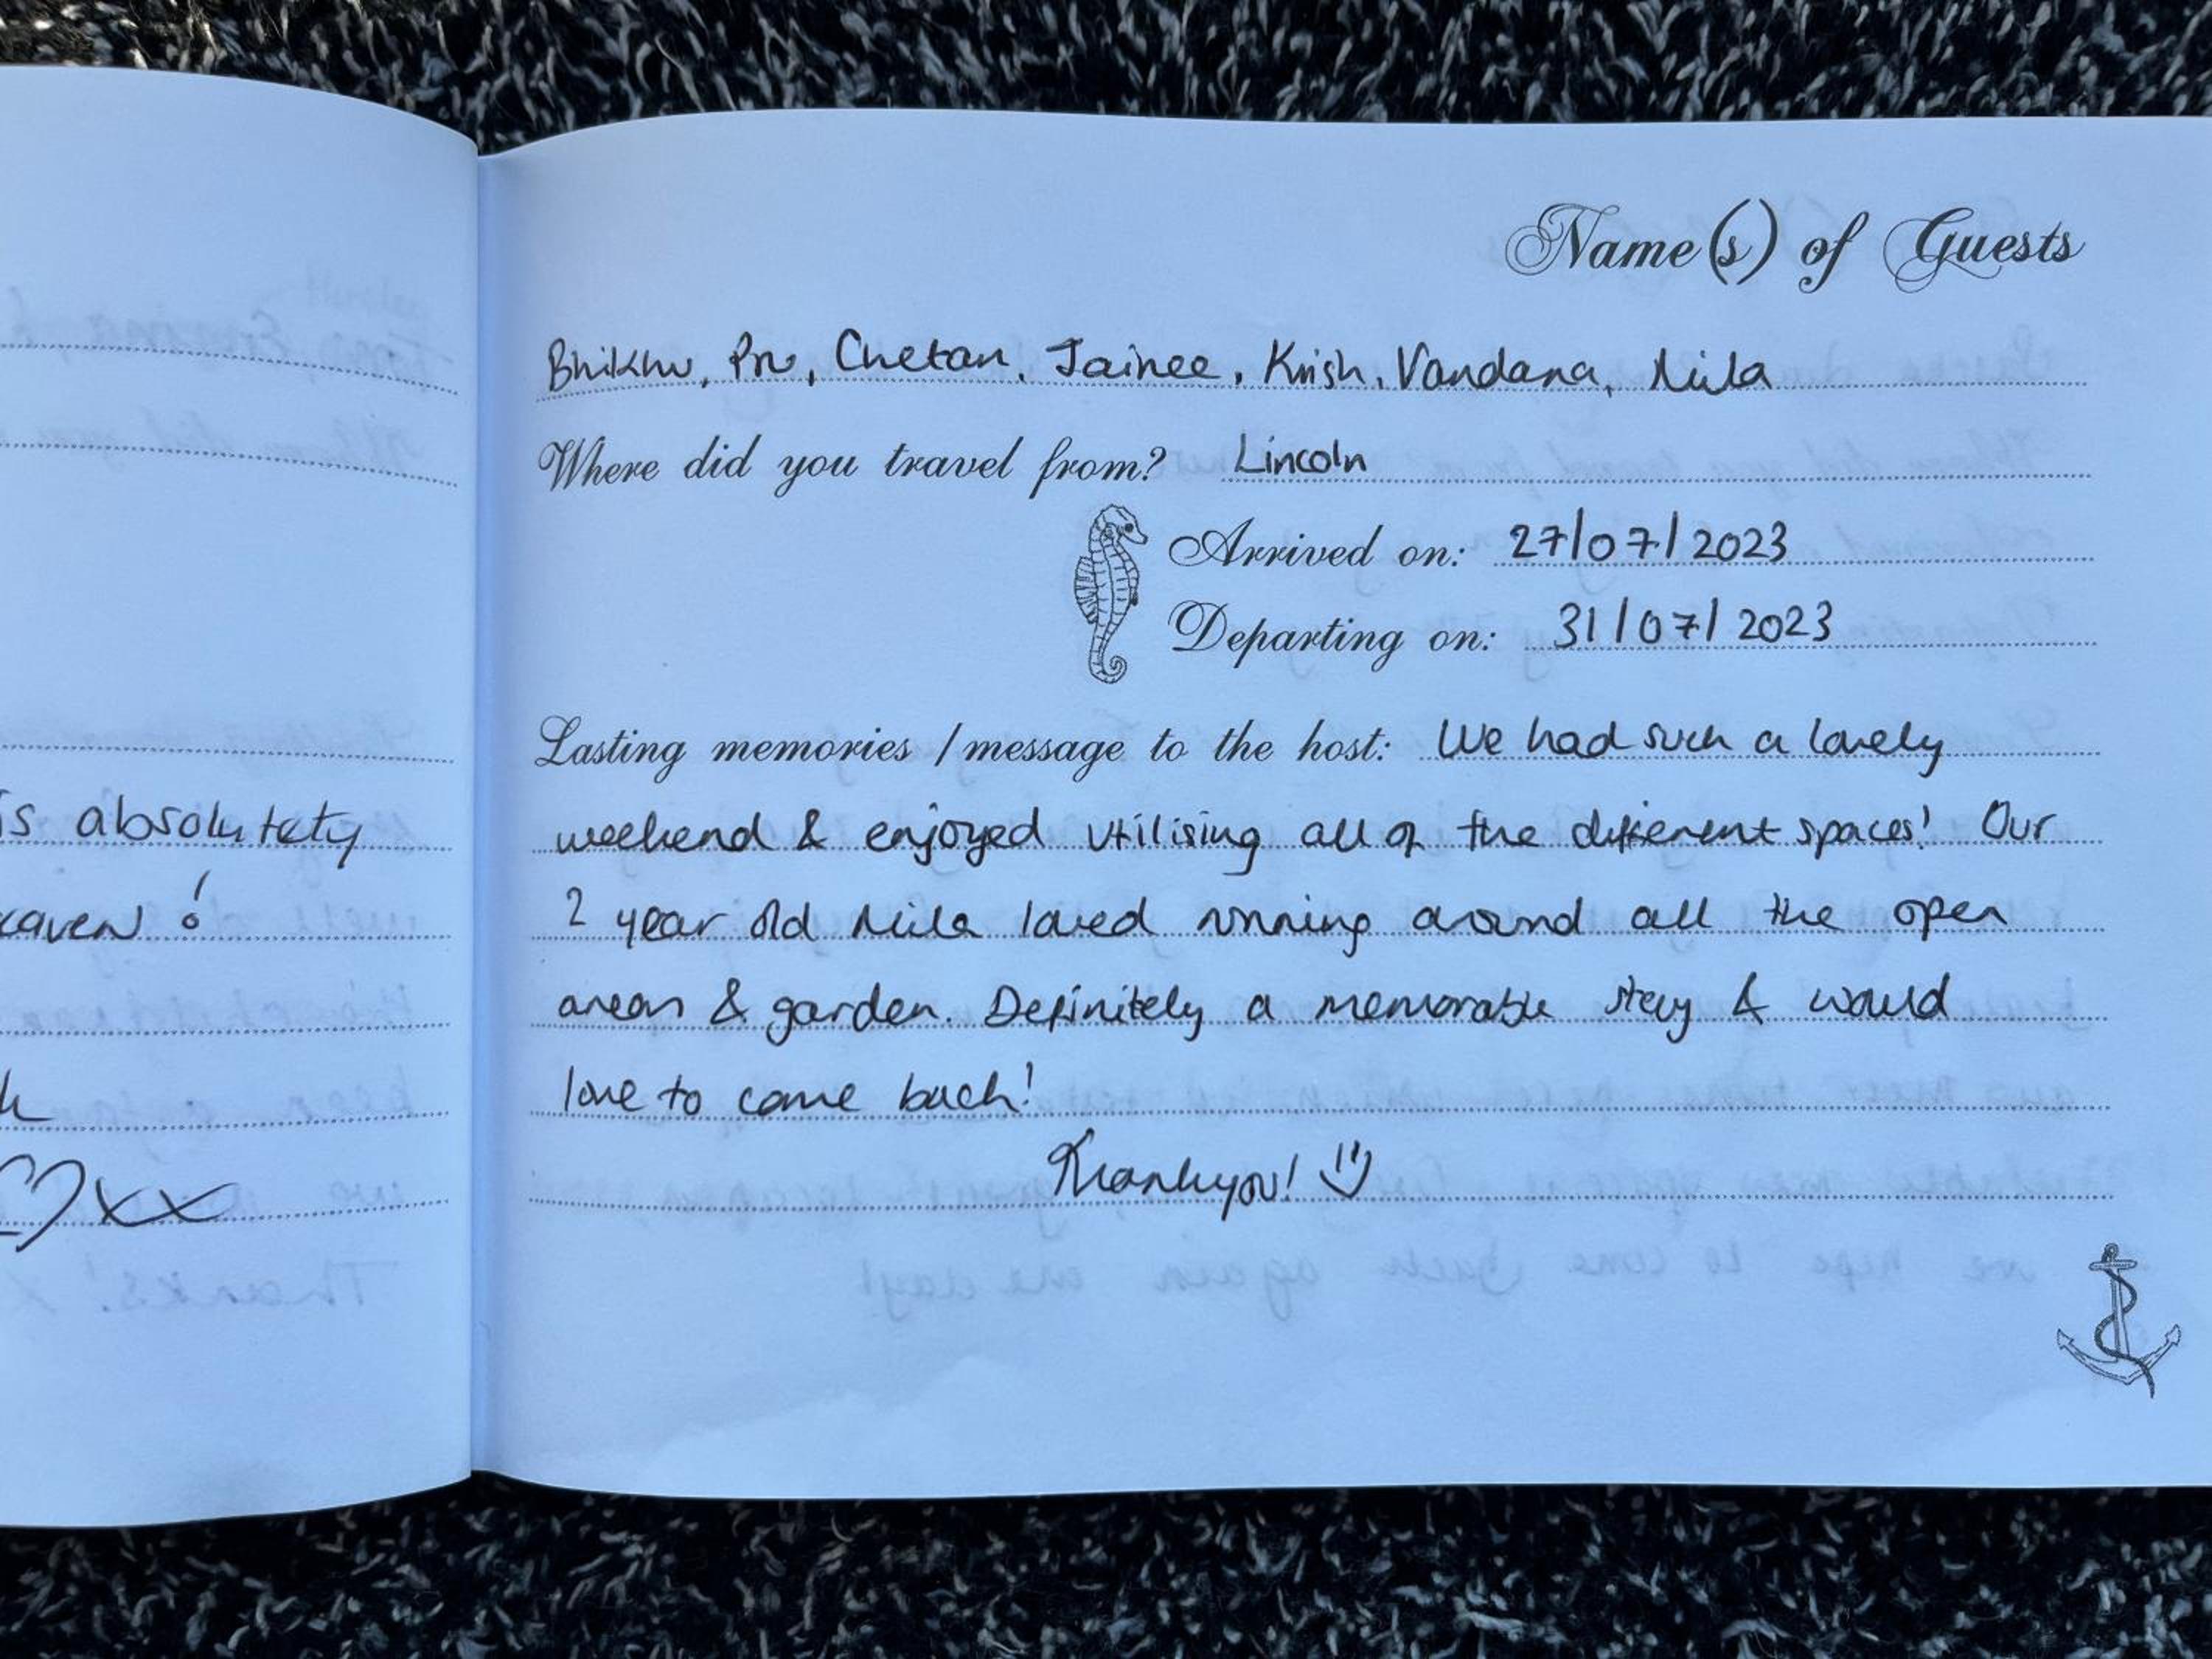 Name(s) of Guests
Bhikhu, Pru, Chetan, Jainee, Krish, Vandana, Nila
Where did you travel from? Lincoln
Arrived on: 27/07/2023
Departing on: 31/07/2023
Lasting memories / message to the host: We had such a lovely
weekend & enjoyed utilising all of the different spaces! Our
2 year old Nila loved running around all the open
areas & garden. Definitely a memorable stay & would
love to come back!
Thankyou!
is absolutely
xx